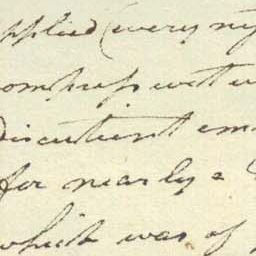 pplied (every ni
ompress wet w
Discutient em
for nearly a
which was of